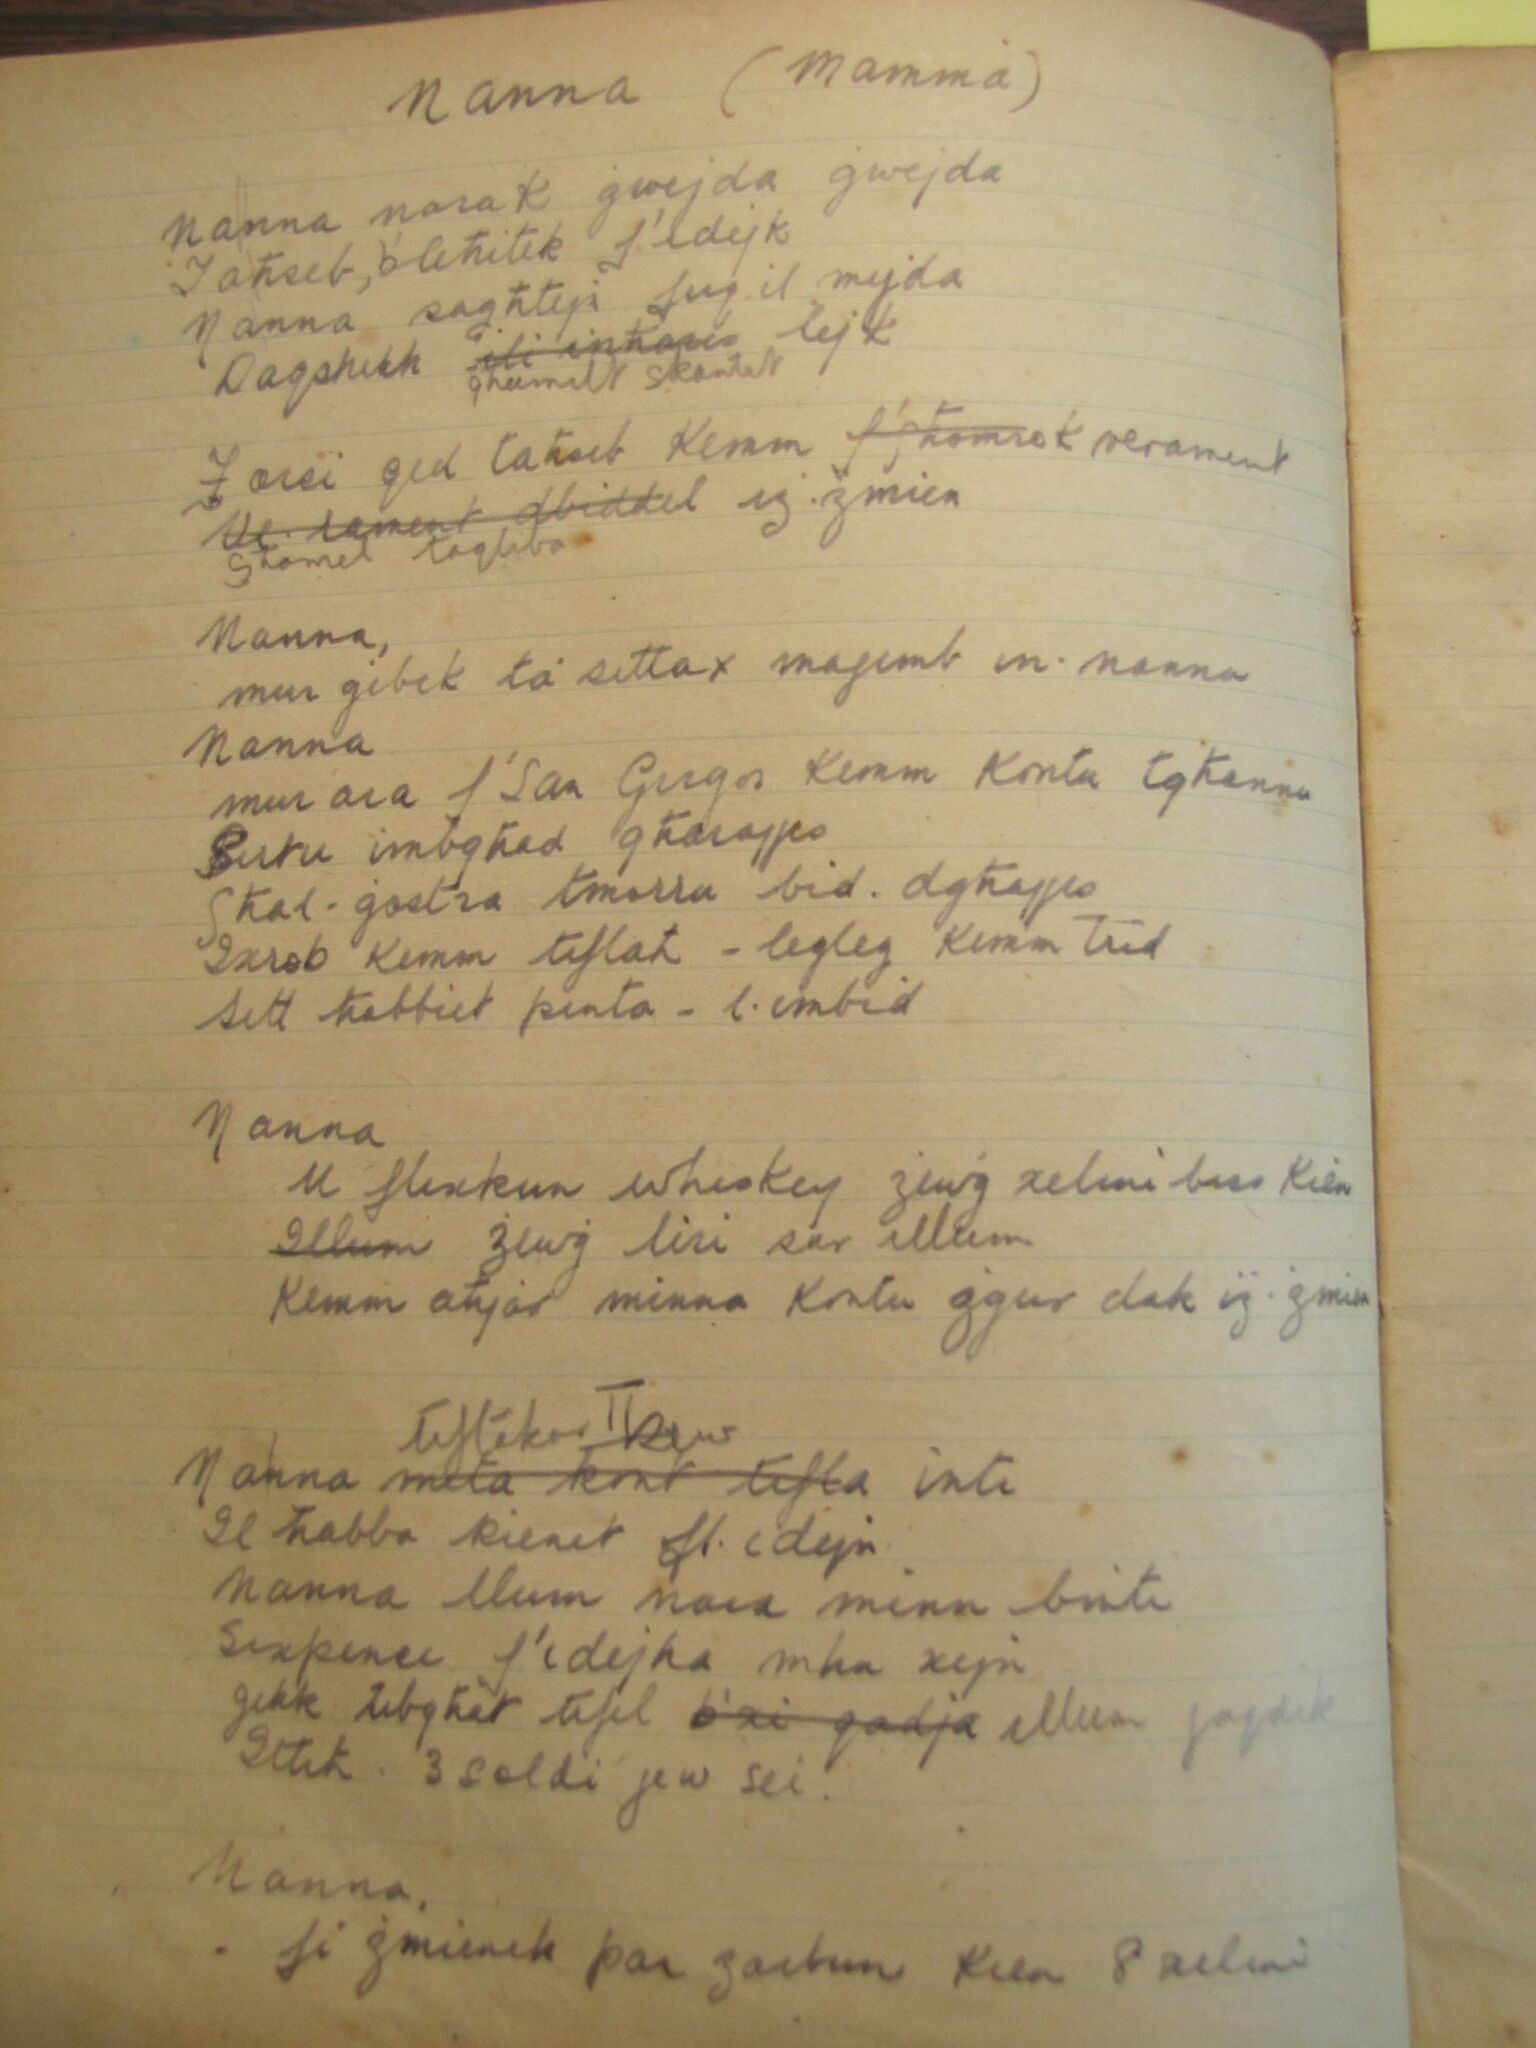 Nanna (Mamma)
Nanna narak ġwejda ġwejda
Taħseb, b'leħitek f'idejk
Nanna sagħtejn fuq il mejda
Daqshekk għeemilt skantat lejk
Forsi qed taħseb kemm f'għomrok verament
Ve.rament dbiddel iż.żmien
Għamel taqliba
Nanna,
mur gibek ta settax magemb in.nannu
Nanna
mur ara f'San Girgor kemm kontu tghannu
Sirku imbgħad għarajjes
Għal.ġostra tmorru bid.dgħajjes
Ixrob kemm tiflaħ - leqleq kemm trid
Sitt ħabbiet pinta - l.imbid
Nanna
U flixkun whiskey żewġ xelini biss kien
Illum żewġ liri sar illum
Kemm aħjar minna kontu ġgur dak iż.żmien
tiftakar II kew
Nanna meta kont tifla inti
Il ħabba kienet fl.idejn
Nanna llum nara minn binti
Sixpence f'idejha mhu xejn
Jekk tibgħat tifel b'xi qadja illum jgħidlek
Itih. 3 soldi jew sei.
Nanna,
fi żmienek par żarbun kien 8 xelini